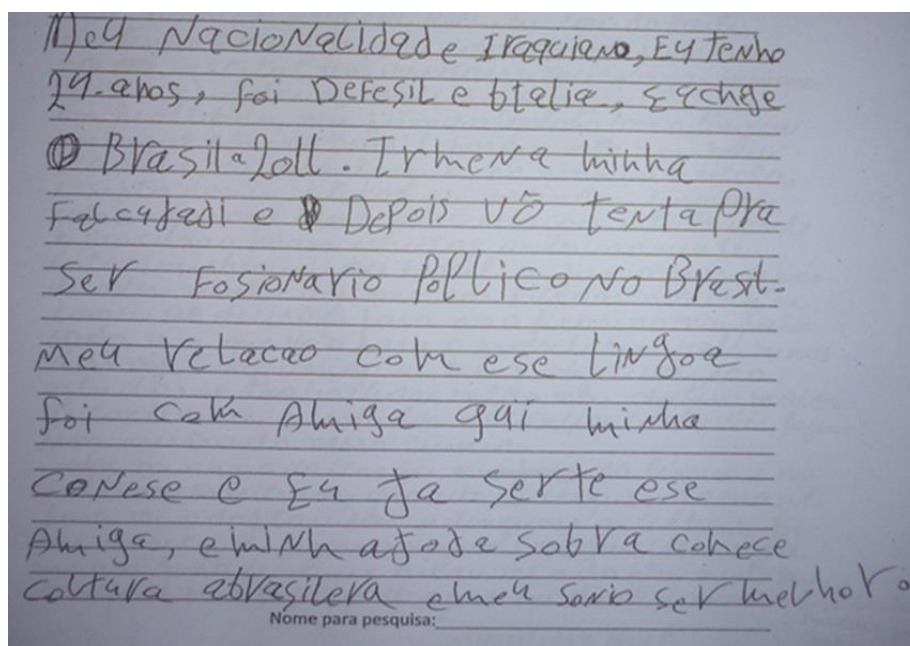 Meu Nacionalidade Iraquiano, Eu tenho
24 anos, foi Defesil e btalia, Euchge
Brasil a 2011. Irmena minha
Falcufadi e Depois võ tenta pra
Ser Fosionario Poplico No Brasil.
Meu relacao com ese lingoa
foi com Amiga qui minha
Conese e Eu ja serte ese
Amiga, e minh ajoda sobra conece
coltura abrasilera e meu sonio ser melhor.
Nome para pesquisa: